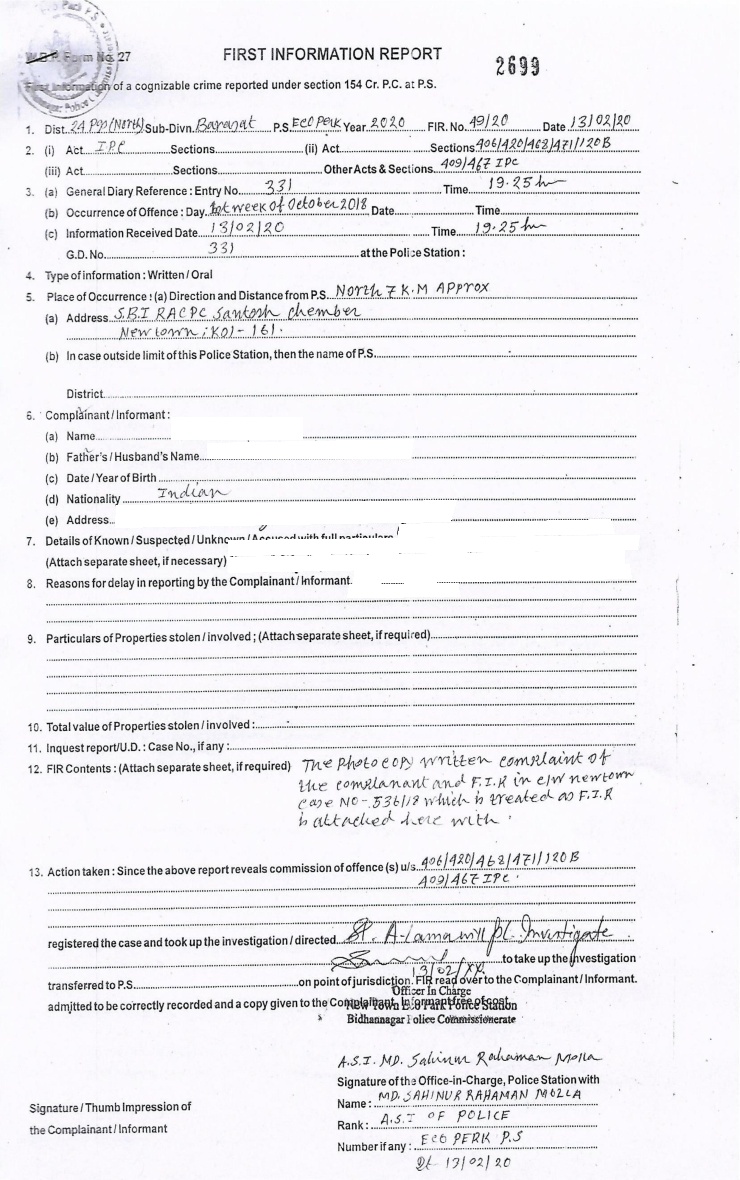 Eco Park P.S.
W.B.P. Form No. 27
FIRST INFORMATION REPORT
2699
First Information of a cognizable crime reported under section 154 Cr. P.C. at P.S.
1. Dist. 24 Pgs (North) Sub-Divn. Barasat P.S. ECO PERK Year 2020 FIR. No. 49/20 Date 13/02/20
2. (i) Act IPC Sections (ii) Act Sections 406/420/468/471/120B
(iii) Act Sections Other Acts & Sections 409/467 IPC
3. (a) General Diary Reference : Entry No. 331 Time 19.25 hr
(b) Occurrence of Offence : Day 1st week of October 2018 Date Time
(c) Information Received Date 13/02/20 Time 19.25 hr
G.D. No. 331 at the Police Station :
4. Type of information : Written / Oral
5. Place of Occurrence : (a) Direction and Distance from P.S. North 7 K.M Approx
(a) Address S.B.I RACPC Santosh chember
Newtown ; Kol - 161.
(b) In case outside limit of this Police Station, then the name of P.S.
District
6. Complainant / Informant :
(a) Name
(b) Father's / Husband's Name
(c) Date / Year of Birth
(d) Nationality Indian
(e) Address
7. Details of Known / Suspected / Unknown / Accused with full particulars
(Attach separate sheet, if necessary)
8. Reasons for delay in reporting by the Complainant / Informant.
9. Particulars of Properties stolen / involved ; (Attach separate sheet, if required)
10. Total value of Properties stolen / involved :
11. Inquest report / U.D. : Case No., if any :
12. FIR Contents : (Attach separate sheet, if required) The photocopy written complaint of
the complanant and F.I.R in c/w newtown
case NO-536/18 which is treated as F.I.R
is attached here with.
13. Action taken : Since the above report reveals commission of offence (s) u/s. 406/420/468/471/120B
409/467 IPC.
registered the case and took up the investigation / directed Investigate
to take up the investigation
13/02/
transferred to P.S. on point of jurisdiction. FIR read over to the Complainant / Informant.
Officer In Charge
admitted to be correctly recorded and a copy given to the Complainant, Informant free of cost.
New Town Eco Park Police Station
Bidhannagar Police Commissionerate
A.S.I. MD. Sahinur Rahaman Molla
Signature of the Office-in-Charge, Police Station with
Name : MD. SAHINUR RAHAMAN MOLLA
Rank : A.S.I OF POLICE
Number if any : ECO PERK P.S
Dt 13/02/20
Signature / Thumb Impression of
the Complainant / Informant